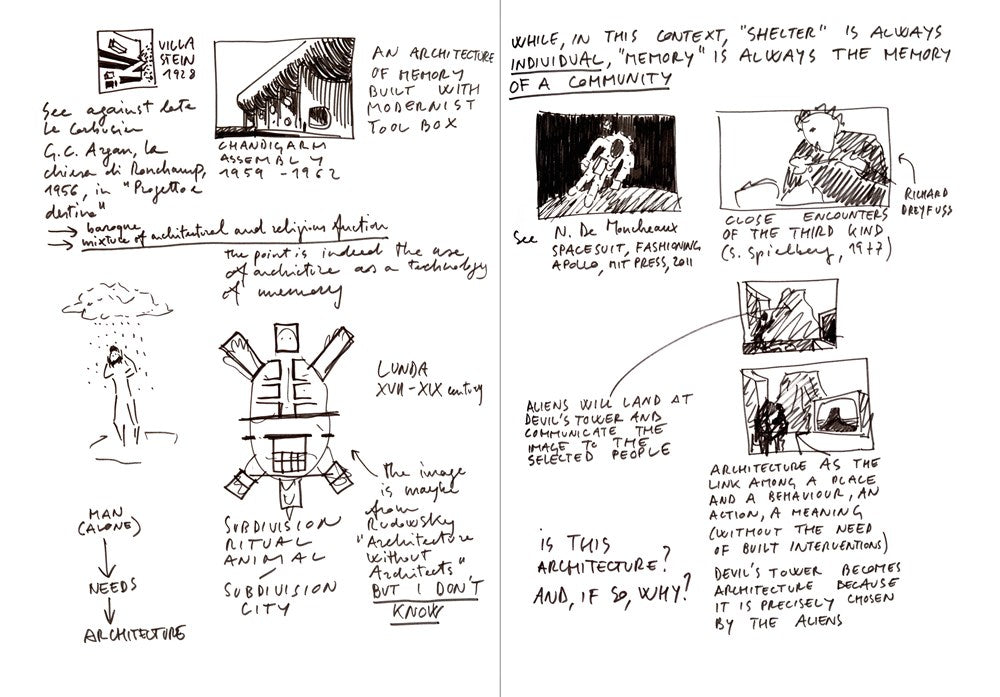 VILLA
STEIN
1928
AN ARCHITECTURE
OF MEMORY
BUILT WITH
MODERNIST
TOOL BOX
See against late
Le Corbusier
G.C. Argan, la
chiesa di Ronchamp,
1956, in "Progetto e
destino"
CHANDIGARH
ASSEMBLY
1959 - 1962
→ baroque
→ mixture of architectural and religious function
the point is indeed the use
of architecture as a technology
of memory
LUNDA
XVII - XIX century
the image
is maybe
from
Rudowsky
"Architecture
without
Architects"
BUT I DON'T
KNOW
MAN
(ALONE)
NEEDS
ARCHITECTURE
SUBDIVISION
RITUAL
ANIMAL
SUBDIVISION
CITY
WHILE, IN THIS CONTEXT, "SHELTER" IS ALWAYS
INDIVIDUAL, "MEMORY" IS ALWAYS THE MEMORY
OF A COMMUNITY
See N. De Moncheaux
SPACESUIT, FASHIONING
APOLLO, MIT PRESS, 2011
RICHARD
DREYFUSS
CLOSE ENCOUNTERS
OF THE THIRD KIND
(S. Spielberg, 1977)
ALIENS WILL LAND AT
DEVIL'S TOWER AND
COMMUNICATE THE
IMAGE TO THE
SELECTED PEOPLE
ARCHITECTURE AS THE
LINK AMONG A PLACE
AND A BEHAVIOUR, AN
ACTION, A MEANING
(WITHOUT THE NEED
OF BUILT INTERVENTIONS)
DEVIL'S TOWER BECOMES
ARCHITECTURE BECAUSE
IT IS PRECISELY CHOSEN
BY THE ALIENS
IS THIS
ARCHITECTURE?
AND, IF SO, WHY?